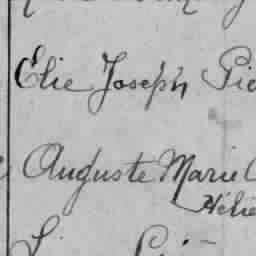 Elie Joseph Pie
Auguste Marie
Hélie